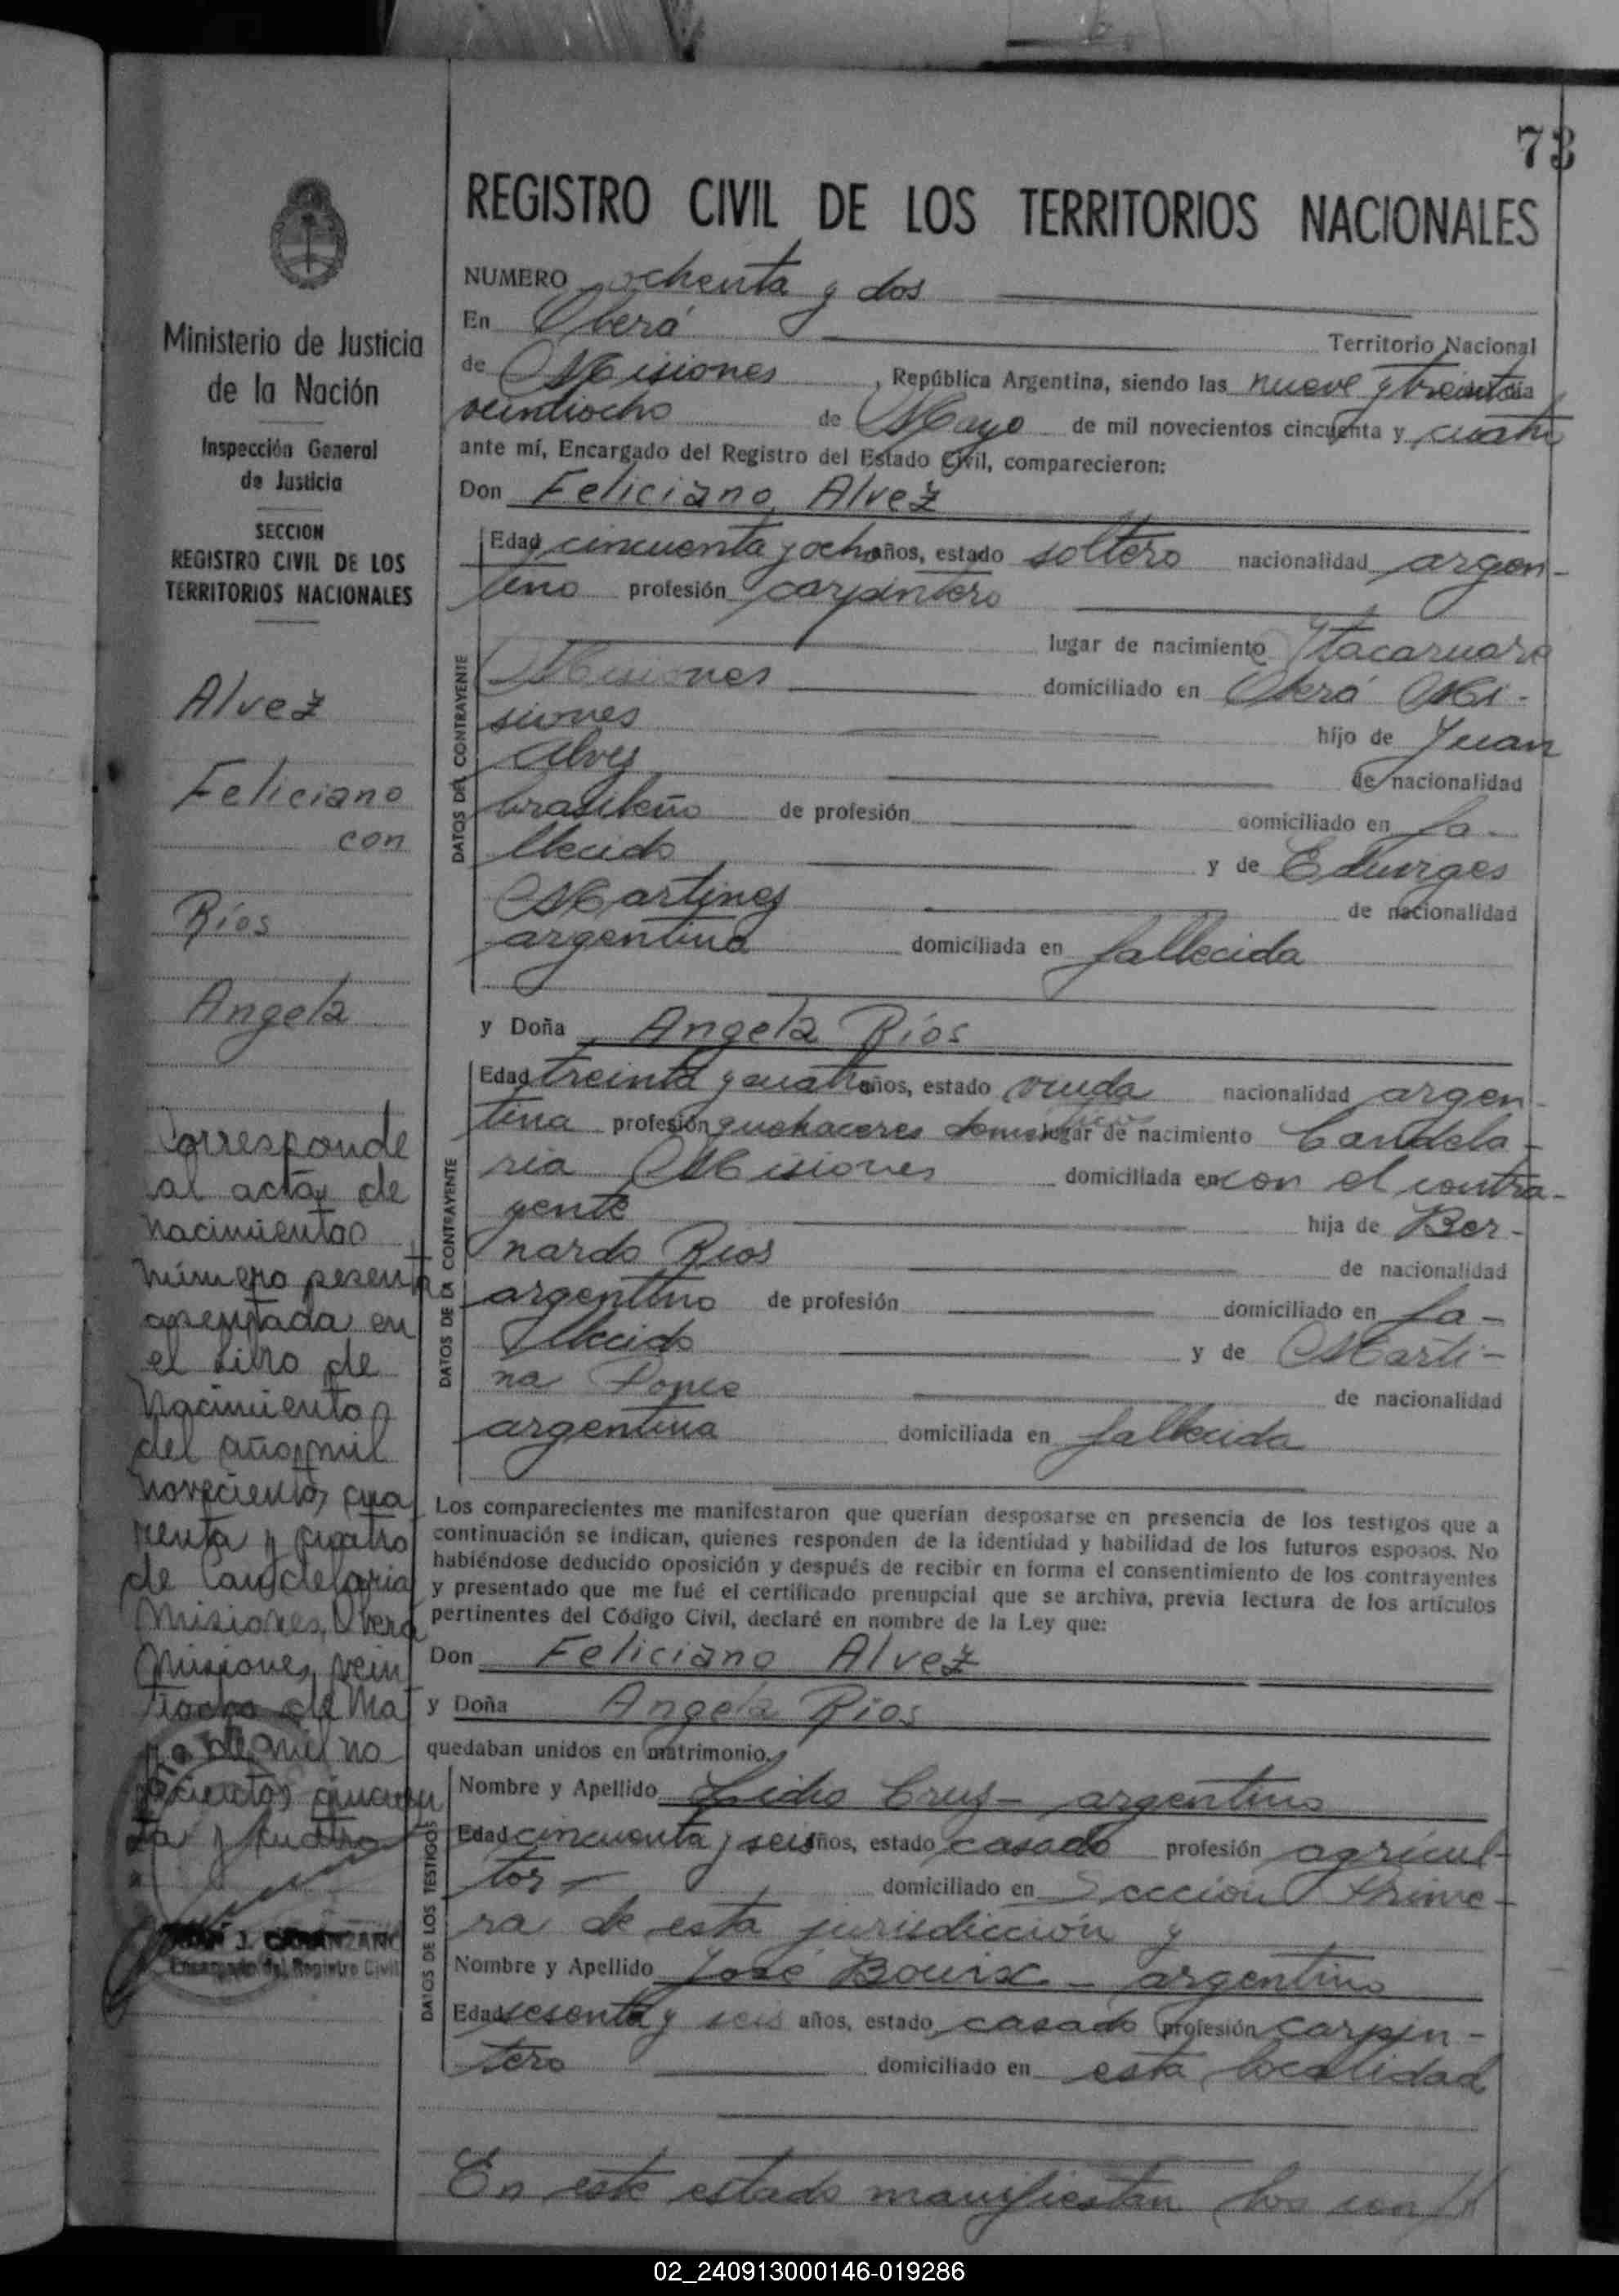 73
REGISTRO CIVIL DE LOS TERRITORIOS NACIONALES
Ministerio de Justicia
de la Nación
Inspección General
de Justicia
SECCION
REGISTRO CIVIL DE LOS
TERRITORIOS NACIONALES
Alvez
Feliciano
con
Ríos
Angela
Corresponde
al acta de
nacimiento
número
asentada en
el Libro de
Nacimiento
del año mil
novecientos cua
renta y cuatro
de Candelaria
Misiones, Oberá
Misiones, vein
tiocho de Ma
yo de mil no
vecientos cincuen
ta y cuatro
Encargado del Registro Civil
NUMERO ochenta y dos
En Oberá Territorio Nacional
de Misiones, República Argentina, siendo las nueve y treinta día
veintiocho de Mayo de mil novecientos cincuenta y cuatro
ante mí, Encargado del Registro del Estado Civil, comparecieron:
Don Feliciano Alvez
DATOS DEL CONTRAYENTE
Edad cincuenta y ocho años, estado soltero nacionalidad argen-
tino profesión carpintero
lugar de nacimiento Itacaruaré
Misiones domiciliado en Oberá Mi-
siones hijo de Juan
Alvez de nacionalidad
brasileño de profesión domiciliado en fa-
llecido y de Eduviges
Martinez de nacionalidad
argentina domiciliada en fallecida
y Doña Angela Ríos
DATOS DE LA CONTRAYENTE
Edad treinta y cuatro años, estado viuda nacionalidad argen-
tina profesión quehaceres domesticos lugar de nacimiento Candela-
ria Misiones domiciliada en con el contra-
yente hija de Ber-
nardo Rios de nacionalidad
argentino de profesión domiciliado en fa-
llecido y de Marti-
na Ponce de nacionalidad
argentina domiciliada en fallecida
Los comparecientes me manifestaron que querían desposarse en presencia de los testigos que a
continuación se indican, quienes responden de la identidad y habilidad de los futuros esposos. No
habiéndose deducido oposición y después de recibir en forma el consentimiento de los contrayentes
y presentado que me fué el certificado prenupcial que se archiva, previa lectura de los artículos
pertinentes del Código Civil, declaré en nombre de la Ley que:
Don Feliciano Alvez
y Doña Angela Ríos
quedaban unidos en matrimonio.
DATOS DE LOS TESTIGOS
Nombre y Apellido Lidio Cruz - argentino
Edad cincuenta y seis años, estado casado profesión agricul-
tor - domiciliado en Sección Prime-
ra de esta jurisdicción y
Nombre y Apellido José - argentino
Edad sesenta y seis años, estado casado profesión carpin-
tero domiciliado en esta localidad
En este estado manifiestan los con
02_240913000146-019286